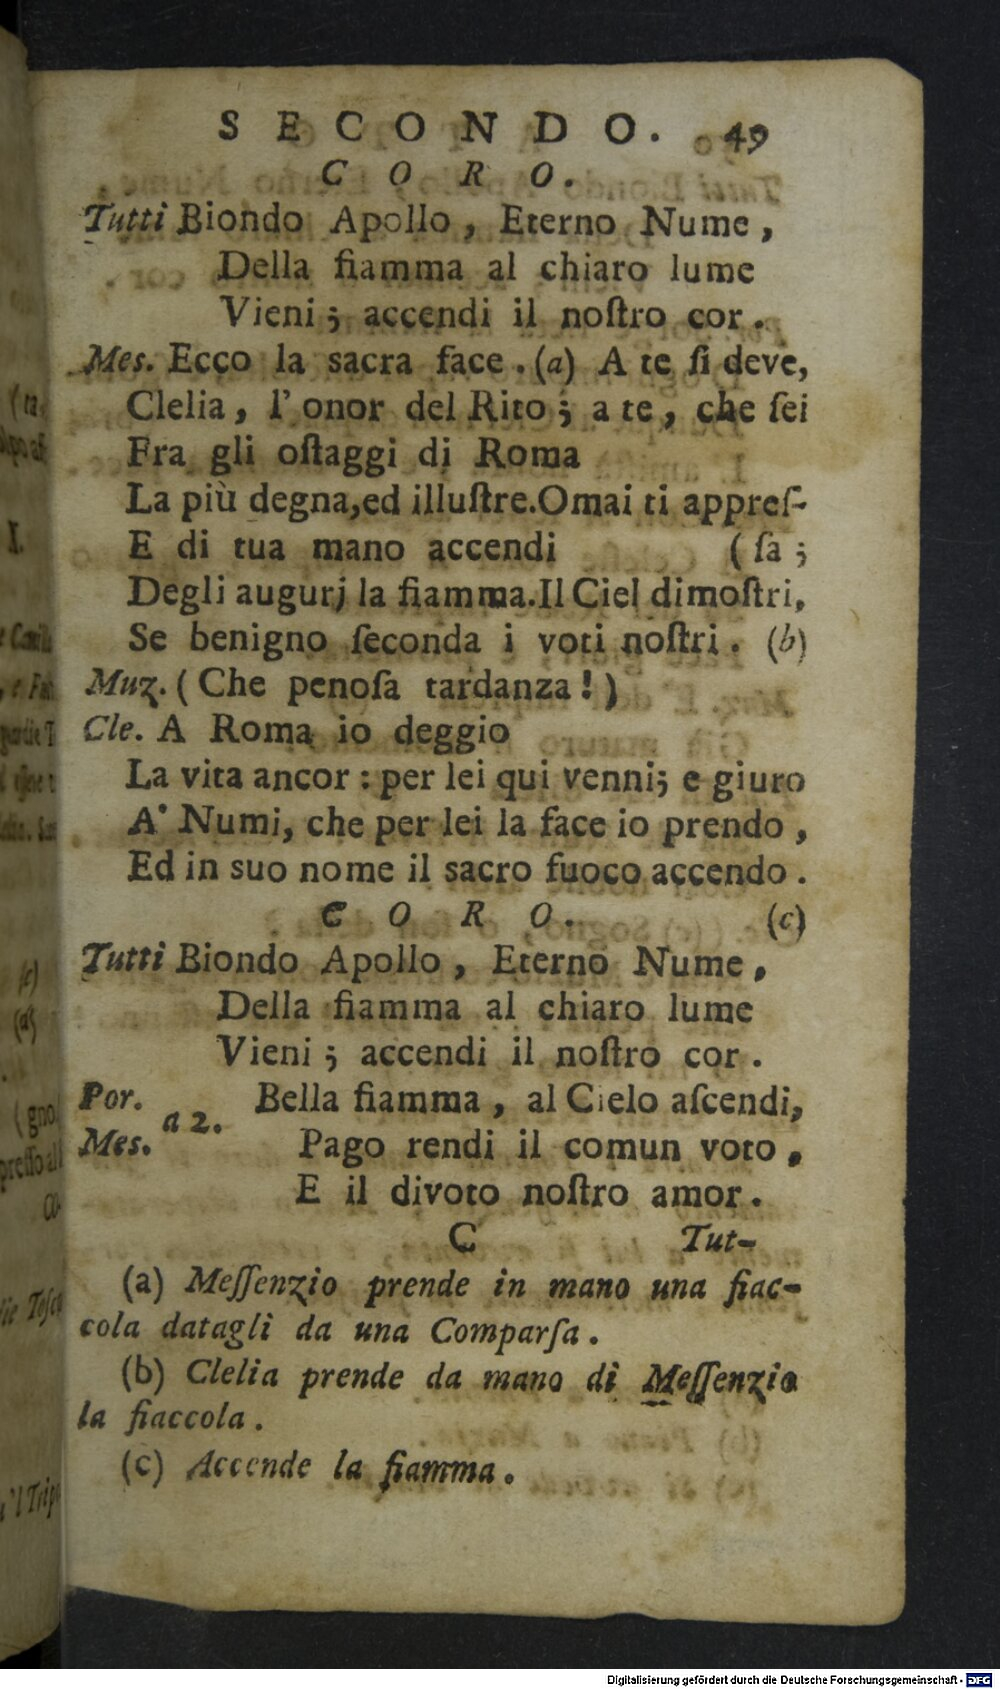 SECONDO. 49
CORO.
Tutti Biondo Apollo, Eterno Nume,
Della fiamma al chiaro lume
Vieni; accendi il noſtro cor.
Mes. Ecco la sacra face. (a) A te ſi deve,
Clelia, l' onor del Rito; a te, che ſei
Fra gli oſtaggi di Roma
La più degna, ed illuſtre. Omai ti appreſ-
E di tua mano accendi (ſa;
Degli augurj la fiamma. Il Ciel dimoſtri,
Se benigno ſeconda i voti noſtri. (b)
Muz. (Che penoſa tardanza!)
Cle. A Roma io deggio
La vita ancor: per lei qui venni; e giuro
A' Numi, che per lei la face io prendo,
Ed in suo nome il sacro fuoco accendo.
CORO. (c)
Tutti Biondo Apollo, Eterno Nume,
Della fiamma al chiaro lume
Vieni; accendi il noſtro cor.
Por. Bella fiamma, al Cielo aſcendi,
a 2.
Mes. Pago rendi il comun voto,
E il divoto noſtro amor.
C Tut-
(a) Meſſenzio prende in mano una fiac-
cola datagli da una Comparſa.
(b) Clelia prende da mano di Meſſenzio
la fiaccola.
(c) Accende la fiamma.
Digitalisierung gefördert durch die Deutsche Forschungsgemeinschaft - DFG